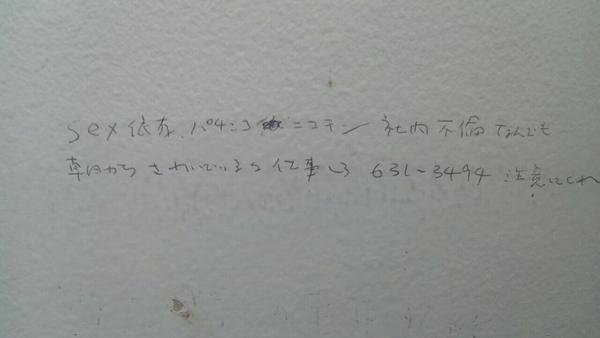 sex依存、パチンコ ニコチン 社内不倫なんでも
朝から さわいでいると仕事しろ 631-3494 注意してくれ